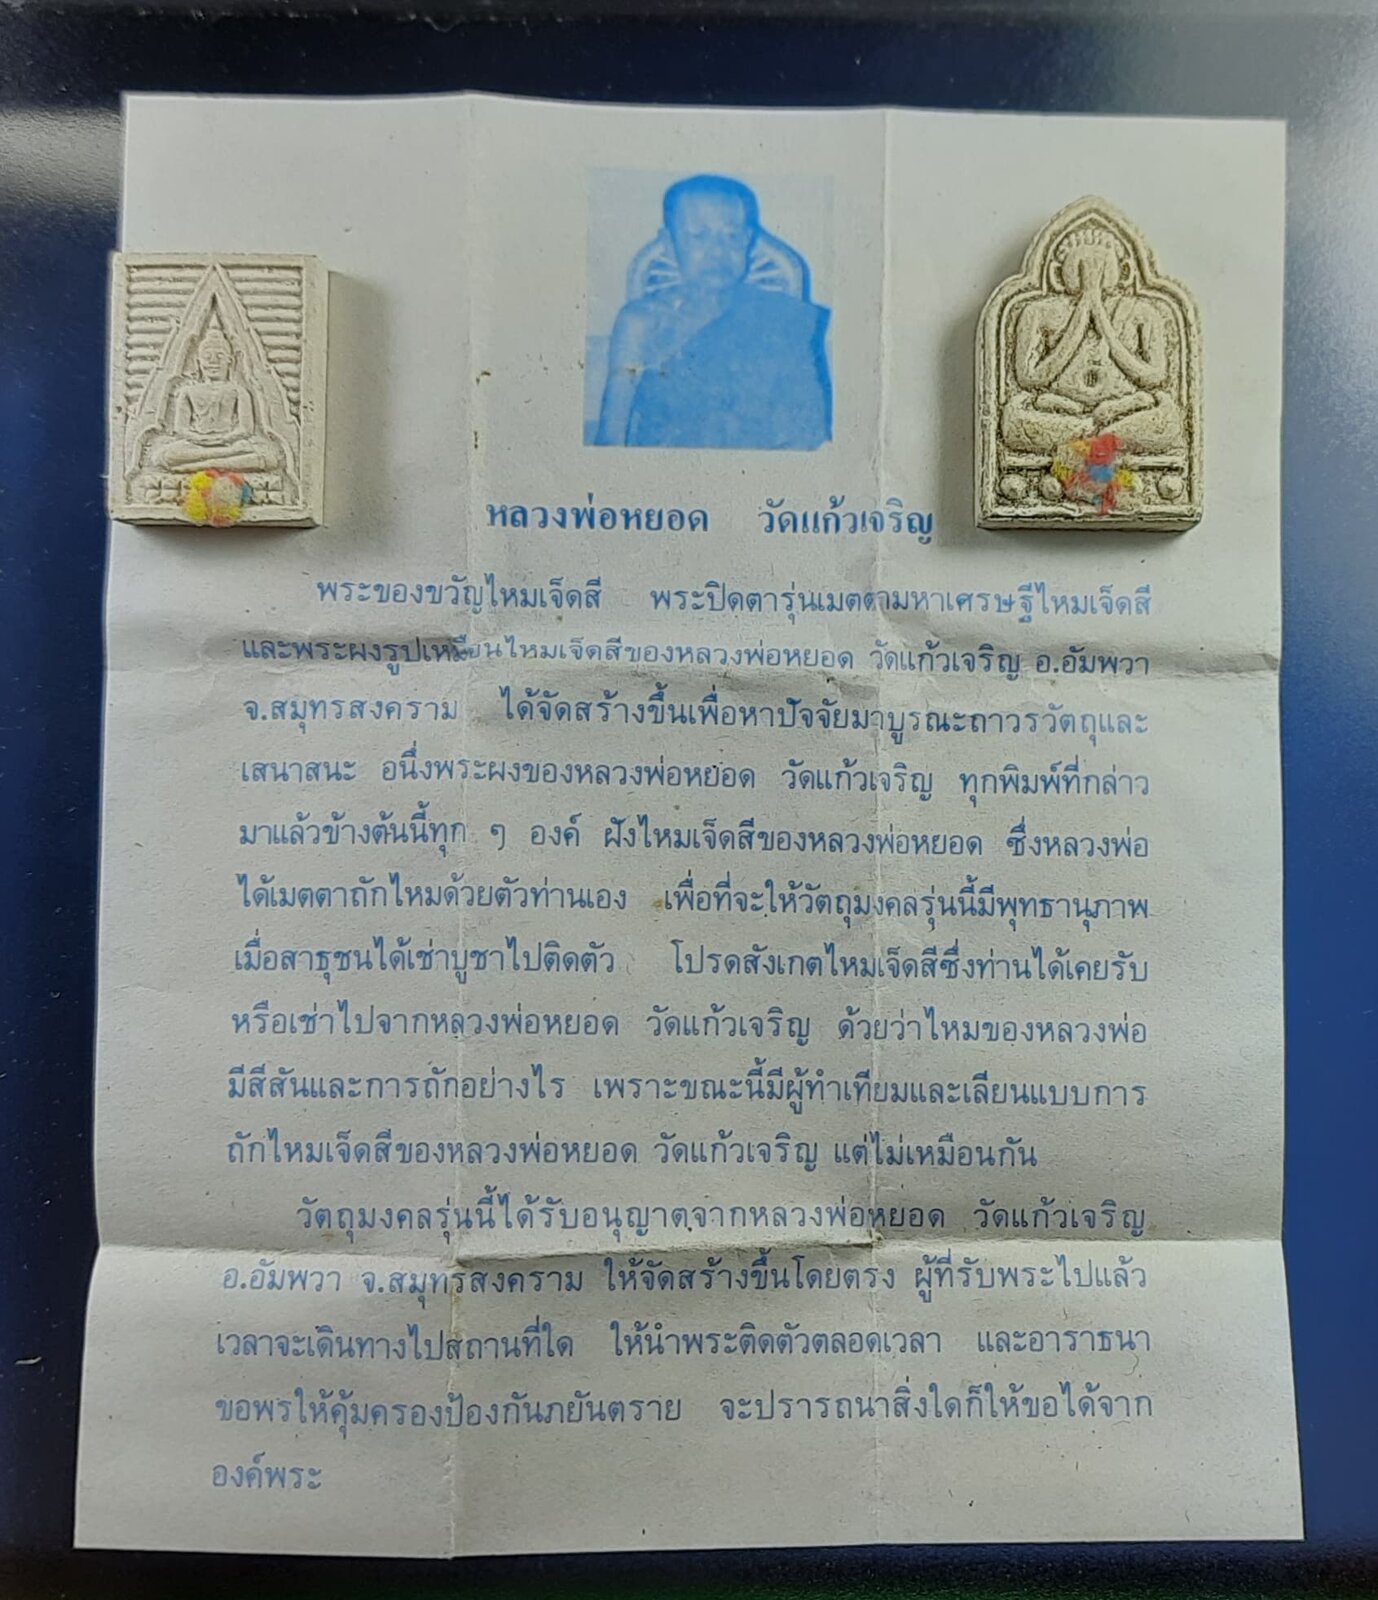 หลวงพ่อหยอด วัดแก้วเจริญ
พระของขวัญไหมเจ็ดสี พระปิดตารุ่นเมตตามหาเศรษฐีไหมเจ็ดสี
และพระผงรูปเหมือนไหมเจ็ดสีของหลวงพ่อหยอด วัดแก้วเจริญ อ.อัมพวา
จ.สมุทรสงคราม ได้จัดสร้างขึ้นเพื่อหาปัจจัยมาบูรณะถาวรวัตถุและ
เสนาสนะ อนึ่งพระผงของหลวงพ่อหยอด วัดแก้วเจริญ ทุกพิมพ์ที่กล่าว
มาแล้วข้างต้นนี้ทุก ๆ องค์ ฝังไหมเจ็ดสีของหลวงพ่อหยอด ซึ่งหลวงพ่อ
ได้เมตตาถักไหมด้วยตัวท่านเอง เพื่อที่จะให้วัตถุมงคลรุ่นนี้มีพุทธานุภาพ
เมื่อสาธุชนได้เช่าบูชาไปติดตัว โปรดสังเกตไหมเจ็ดสีซึ่งท่านได้เคยรับ
หรือเช่าไปจากหลวงพ่อหยอด วัดแก้วเจริญ ด้วยว่าไหมของหลวงพ่อ
มีสีสันและการถักอย่างไร เพราะขณะนี้มีผู้ทำเทียมและเลียนแบบการ
ถักไหมเจ็ดสีของหลวงพ่อหยอด วัดแก้วเจริญ แต่ไม่เหมือนกัน
วัตถุมงคลรุ่นนี้ได้รับอนุญาตจากหลวงพ่อหยอด วัดแก้วเจริญ
อ.อัมพวา จ.สมุทรสงคราม ให้จัดสร้างขึ้นโดยตรง ผู้ที่รับพระไปแล้ว
เวลาจะเดินทางไปสถานที่ใด ให้นำพระติดตัวตลอดเวลา และอาราธนา
ขอพรให้คุ้มครองป้องกันภยันตราย จะปรารถนาสิ่งใดก็ให้ขอได้จาก
องค์พระ